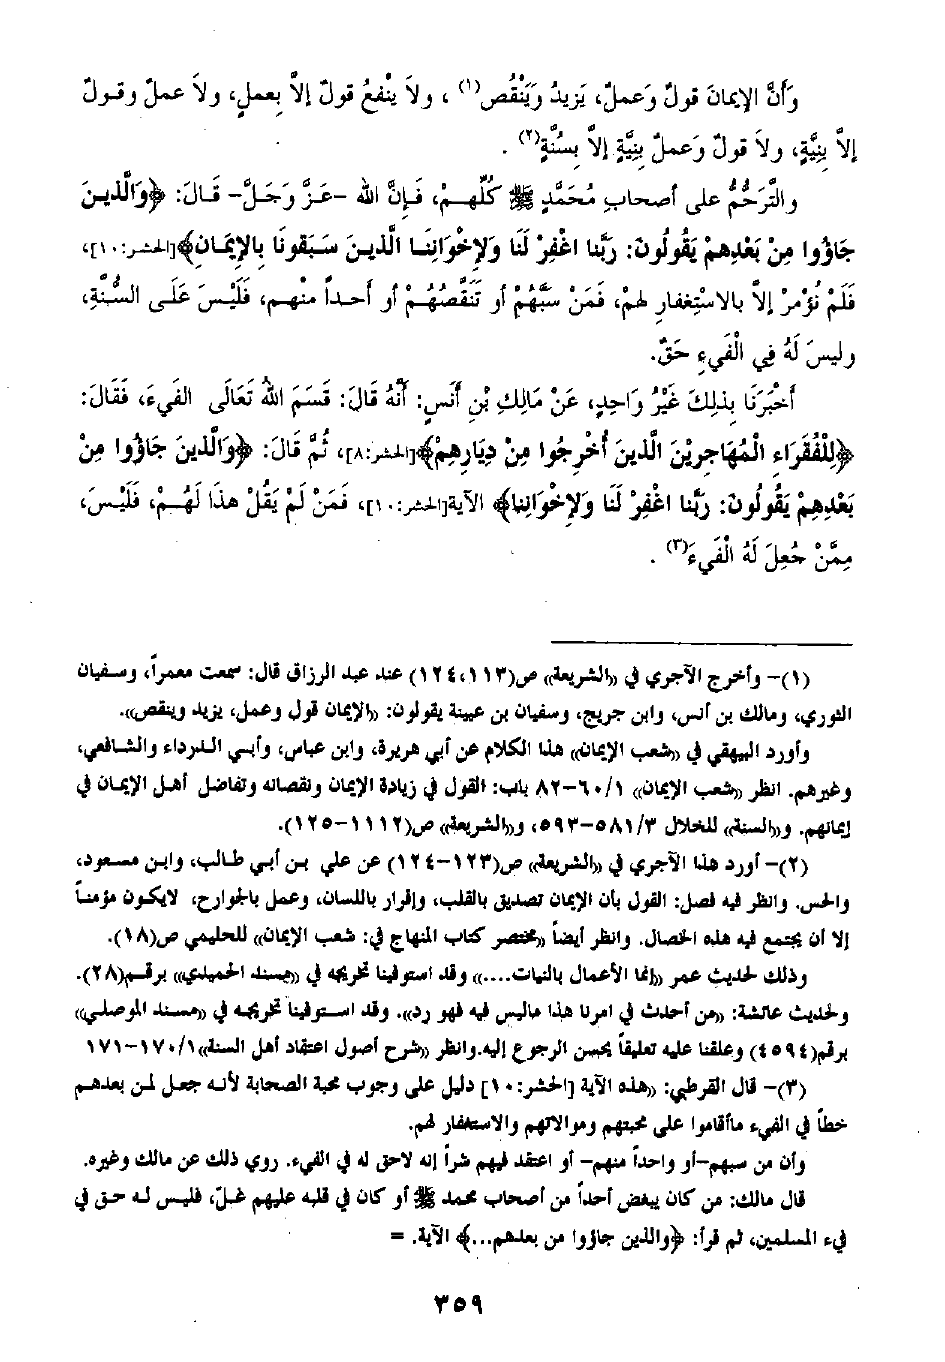 وَأَنَّ الإِيمَانَ قولٌ وَعملٌ، يَزِيدُ وَيَنْقُص(١) ، ولاَ يَنْفعُ قولٌ إلاَّ بعملٍ، ولاَ عملٌ وقولٌ
إلاَّ بِنِيَّةٍ، ولاَ قولٌ وَعملٌ بِنِيَّةٍ إلاَّ بِسُنَّةٍ(٢) .
والتَّرَحُّمُ على أصحابِ مُحَمَّدٍ ﷺ كُلِّهِمْ، فَإِنَّ الله -عَزَّ وَجَلَّ- قَالَ: ﴿وَالَّذينَ
جَاؤُوا مِنْ بَعْدِهمْ يَقُولُونَ: رَبَّنا اغْفِرْ لَنَا وَلإِخْوَانِنَا الَّذينَ سَبَقُونَا بِالإِيمَانِ﴾[الحشر:١٠]،
فَلَمْ نُؤْمَرْ إلاَّ بالاسْتِغفارِ لهمْ، فَمَنْ سَبَّهُمْ أو تَنَقَّصُهُمْ أو أَحداً منْهم، فَلَيْسَ عَلَى السُّنَّةِ،
وليسَ لَهُ فِي الْفَيءِ حَقٌ.
أَخْبَرَنَا بِذلِكَ غَيْرُ وَاحِدٍ، عَنْ مَالِكِ بْنِ أَنَسٍ: أَنَّهُ قَالَ: قَسَمَ اللهُ تَعَالَى الفَيءَ، فَقَالَ:
﴿لِلْفُقَرَاءِ الْمُهَاجِرِيْنَ الَّذينَ أُخْرِجُوا مِنْ دِيَارِهِمْ﴾[الحشر:٨]، ثُمَّ قَالَ: ﴿وَالَّذينَ جَاؤُوا مِنْ
بَعْدِهِمْ يَقُولُونَ: رَبَّنا اغْفِر لَنَا وَلإِخْوَانِنا﴾ الآية[الحشر:١٠]، فَمَنْ لَمْ يَقُلْ هذَا لَهُمْ، فَلَيْسَ،
مِمَّنْ جُعِلَ لَهُ الْفَيءَ(٣) .
(١)- وأخرج الآجري في «الشريعة» ص(١٢٤،١١٣) عند عبد الرزاق قال: سمعت معمراً، وسفيان
الثوري، ومالك بن أنس، وابن جريج، وسفيان بن عيينة يقولون: «الإيمان قول وعمل، يزيد وينقص».
وأورد البيهقي في «شعب الإيمان» هذا الكلام عن أبي هريرة، وابن عباس، وأبي الدرداء والشافعي،
وغيرهم. انظر «شعب الإيمان» ١/ ٦٠-٨٢ باب: القول في زيادة الإيمان ونقصانه وتفاضل أهل الإيمان في
إيمانهم. و«السنة» للخلال ٥٨١/٣-٥٩٣، و«الشريعة» ص(١١١٢-١٢٥).
(٢)- أورد هذا الآجري في «الشريعة» ص(١٢٣-١٢٤) عن علي بن أبي طالب، وابن مسعود،
والحس. وانظر فيه فصل: القول بأن الإيمان تصديق بالقلب، وإقرار باللسان، وعمل بالجوارح، لايكون مؤمناً
إلا أن يجتمع فيه هذه الخصال. وانظر أيضاً «مختصر كتاب المنهاج في: شعب الإيمان» للحليمي ص(١٨).
وذلك لحديث عمر «إنما الأعمال بالنيات....» وقد استوفينا تخريجه في «مسند الحميدي» برقم(٢٨).
ولحديث عائشة: «من أحدث في امرنا هذا ماليس فيه فهو رد». وقد استوفينا تخريجه في «مسند الموصلي»
برقم(٤٥٩٤) وعلقنا عليه تعليقاً يحسن الرجوع إليه.وانظر «شرح أصول اعتقاد أهل السنة»١٧٠/١-١٧١
(٣)- قال القرطبي: «هذه الآية [الحشر:١٠] دليل على وجوب محبة الصحابة لأنه جعل لمن بعدهم
خطاً في الفيء ماأقاموا على محبتهم وموالاتهم والاستغفار لهم.
وأن من سبهم-أو واحداً منهم- أو اعتقد فيهم شراً إنه لاحق له في الفيء. روي ذلك عن مالك وغيره.
قال مالك: من كان يبغض أحداً من أصحاب محمد ﷺ أو كان في قلبه عليهم غلّ، فليس له حق في
فيء المسلمين، ثم قرأ: ﴿والذين جاؤوا من بعدهم...﴾ الآية. =
٣٥٩